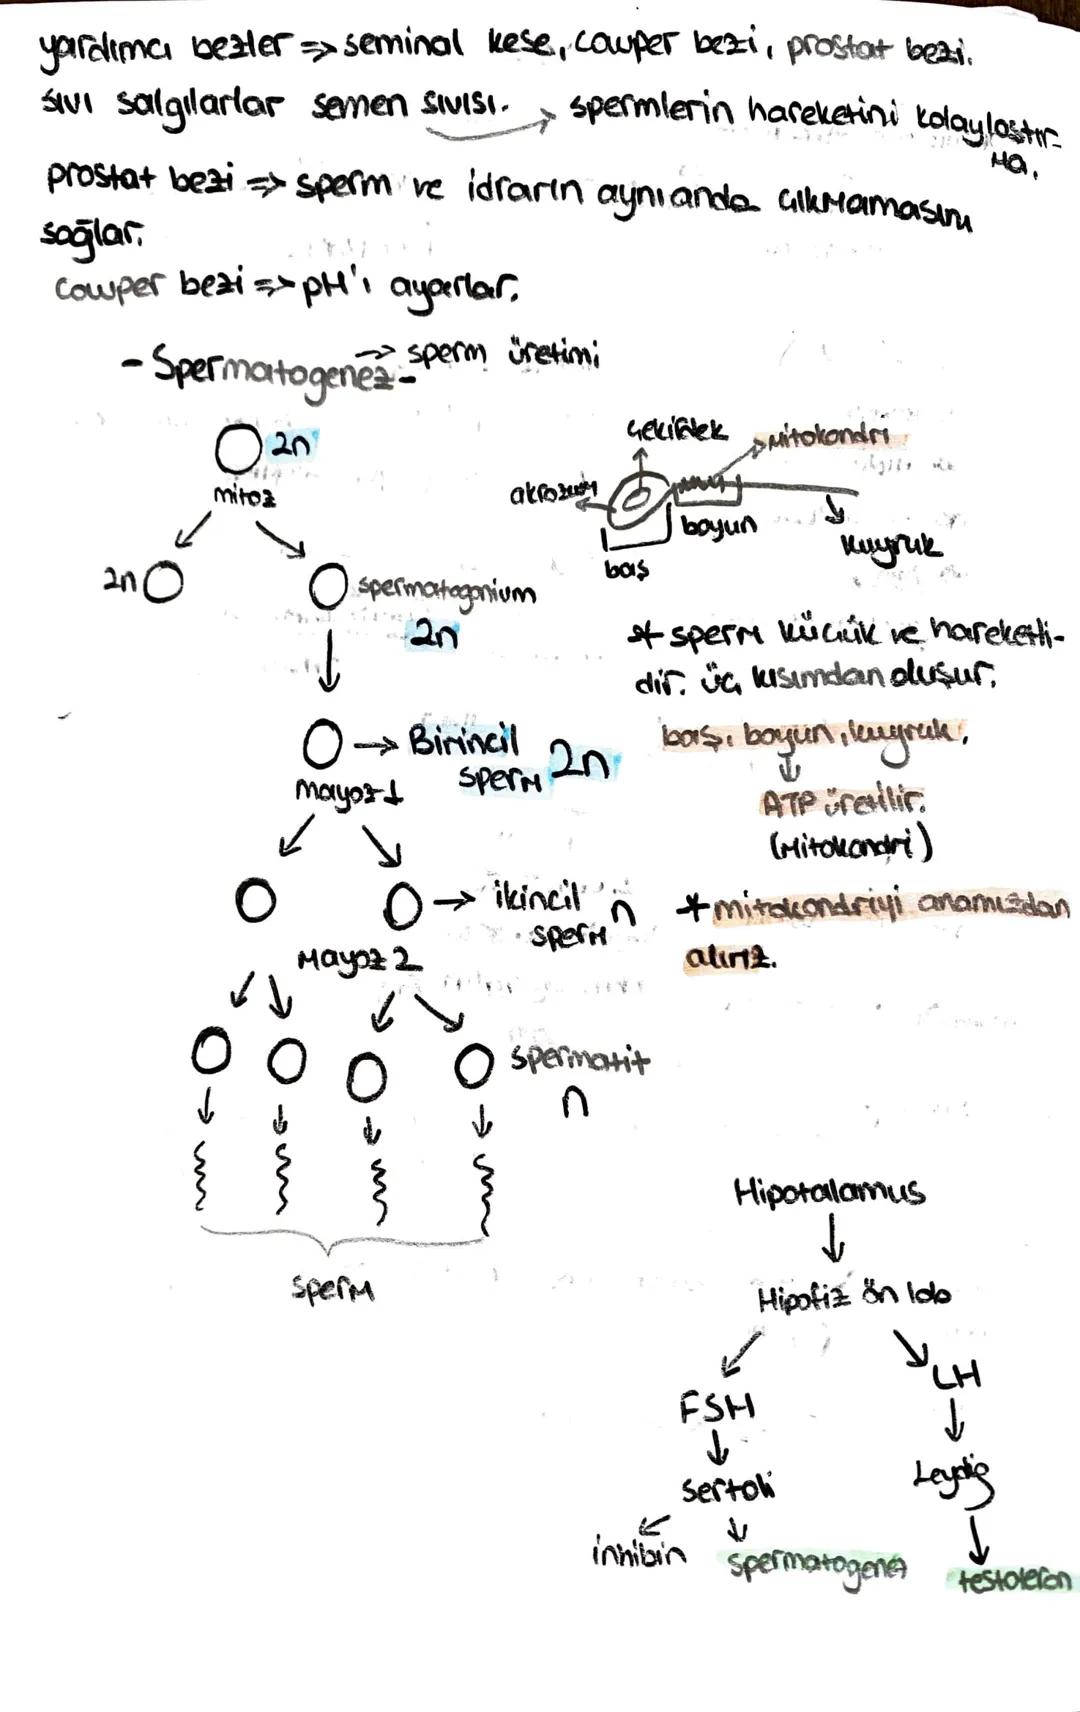 yardımcı bezler => seminal kese, cowper bezi, prostat bezi.
sıvı salgılarlar semen sıvısı. → spermlerin hareketini kolaylaştır-
ma.
prostat bezi => sperm ve idrarın aynı anda çıkmamasını
sağlar.
cowper bezi => pH'ı ayarlar.
- Spermatogenez - → sperm üretimi
2n
mitoz
2n
spermatogonium
2n
Birincil
sperm 2n
mayoz 1
ikincil n
sperm
Mayoz 2
spermatit
n
sperm
çekirdek
mitokondri
akrozom
boyun
kuyruk
baş
* sperm küçük ve hareketli-
dir. üç kısımdan oluşur.
baş, boyun, kuyruk.
ATP üretilir.
(mitokondri)
* mitokondriyi anamızdan
alırız.
Hipotalamus
Hipofiz ön lob
FSH
LH
sertoli
Leydig
inhibin
spermatogenez
testoteron